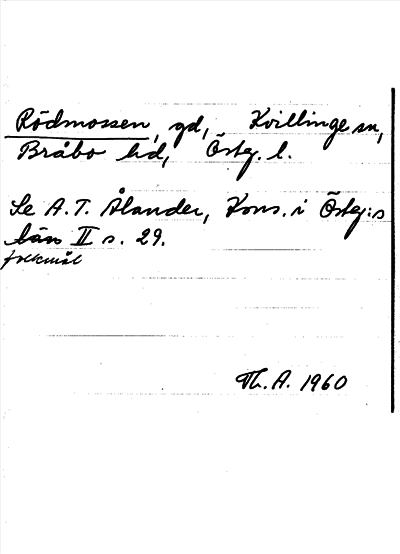 Rödmossen, gd, Kvillinge sn,
Bråbo hd, Östg. l.
Se A. T. Ålander, Kons. i Östg:s
län II s. 29.
folkmål
Th. A. 1960